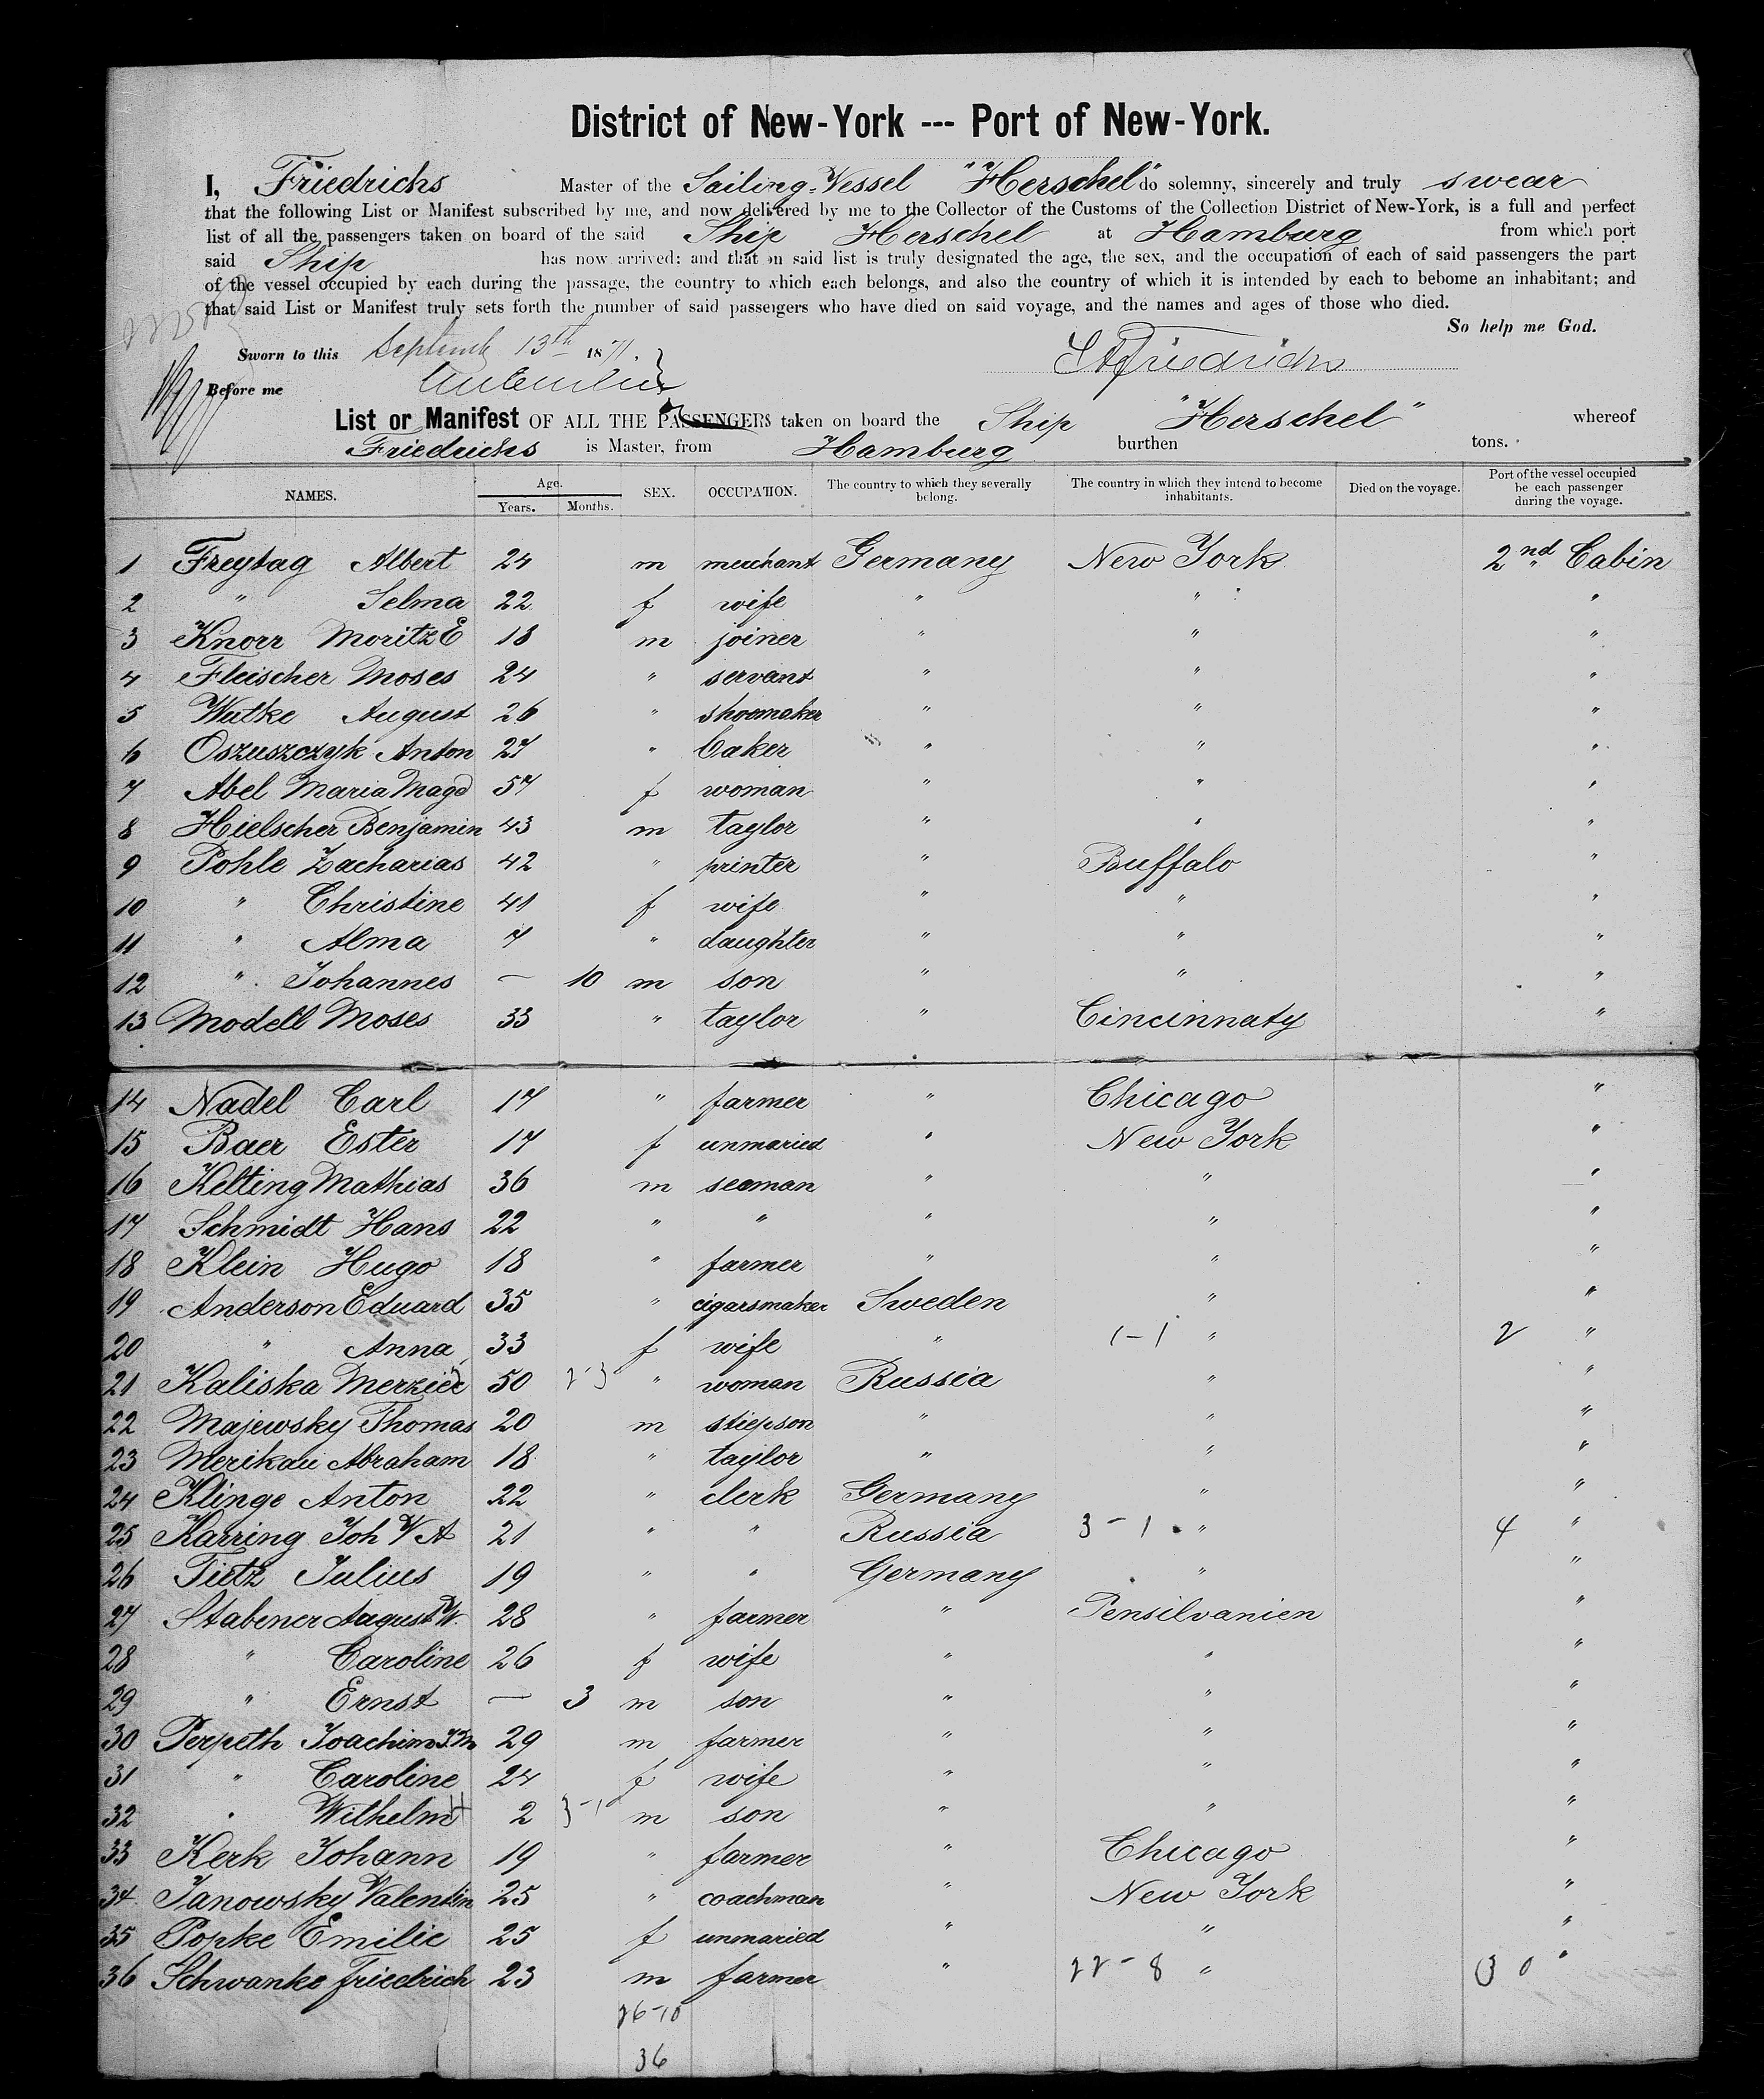 District of New-York --- Port of New-York.
I, Friedrichs Master of the Sailing-Vessel "Herschel" do solemny, sincerely and truly swear
that the following List or Manifest subscribed by me, and now delivered by me to the Collector of the Customs of the Collection District of New-York, is a full and perfect
list of all the passengers taken on board of the said Ship Herschel at Hamburg from which port
said Ship has now arrived: and that on said list is truly designated the age, the sex, and the occupation of each of said passengers the part
of the vessel occupied by each during the passage, the country to which each belongs, and also the country of which it is intended by each to bebome an inhabitant; and
that said List or Manifest truly sets forth the number of said passengers who have died on said voyage, and the names and ages of those who died.
So help me God.
Sworn to this 13th 1871.
Friedrichs
Before me
List or Manifest OF ALL THE PASSENGERS taken on board the Ship "Herschel" whereof
Friedrichs is Master, from Hamburg burthen tons.
NAMES. Age. Years. Months. SEX. OCCUPATION. The country to which they severally belong. The country in which they intend to become inhabitants. Died on the voyage. Port of the vessel occupied be each passenger during the voyage.
1 Freytag Albert 24 m merchant Germany New York 2nd Cabin
2 " Selma 22 f wife " " "
3 Knorr Moritz E 18 m joiner " " "
4 Fleischer Moses 24 " servant " " "
5 Wutke August 26 " shoemaker " " "
6 Oszuszczyk Anton 27 " baker " " "
7 Abel Maria Magd 57 f woman " " "
8 Hielscher Benjamin 43 m taylor " " "
9 Pohle Zacharias 42 " printer " Buffalo "
10 " Christine 41 f wife " " "
11 " Alma 7 " daughter " " "
12 " Johannes — 10 m son " " "
13 Modell Moses 33 " taylor " Cincinnaty "
14 Nadel Carl 17 " farmer " Chicago "
15 Baer Ester 17 f unmaried " New York "
16 Kelting Mathias 36 m seaman " " "
17 Schmidt Hans 22 " " " " "
18 Klein Hugo 18 " farmer " " "
19 Anderson Eduard 35 " cigarsmaker Sweden " "
20 " Anna 33 f wife " 1-1 " 2 "
21 Kaliska 50 2-3 " woman Russia " "
22 Majewsky Thomas 20 m stiepson " " "
23 Abraham 18 " taylor " " "
24 Klinge Anton 22 " clerk Germany " "
25 Karring Joh V A 21 " " Russia 3-1 " 4 "
26 Tietz Julius 19 " " Germany " "
27 Stabener August W. 28 " farmer " Pensilvanien "
28 " Caroline 26 f wife " " "
29 " Ernst — 3 m son " " "
30 Perpeth Joachim 29 m farmer " " "
31 " Caroline 24 f wife " " "
32 " Wilhelm 2 3-1 m son " " "
33 Kerk Johann 19 " farmer " Chicago "
34 Janowsky Valentin 25 " coachman " New York "
35 Popke Emilie 25 f unmaried " " "
36 Schwanke Friedrich 23 m farmer " 22-8 " 30 "
26-10
36